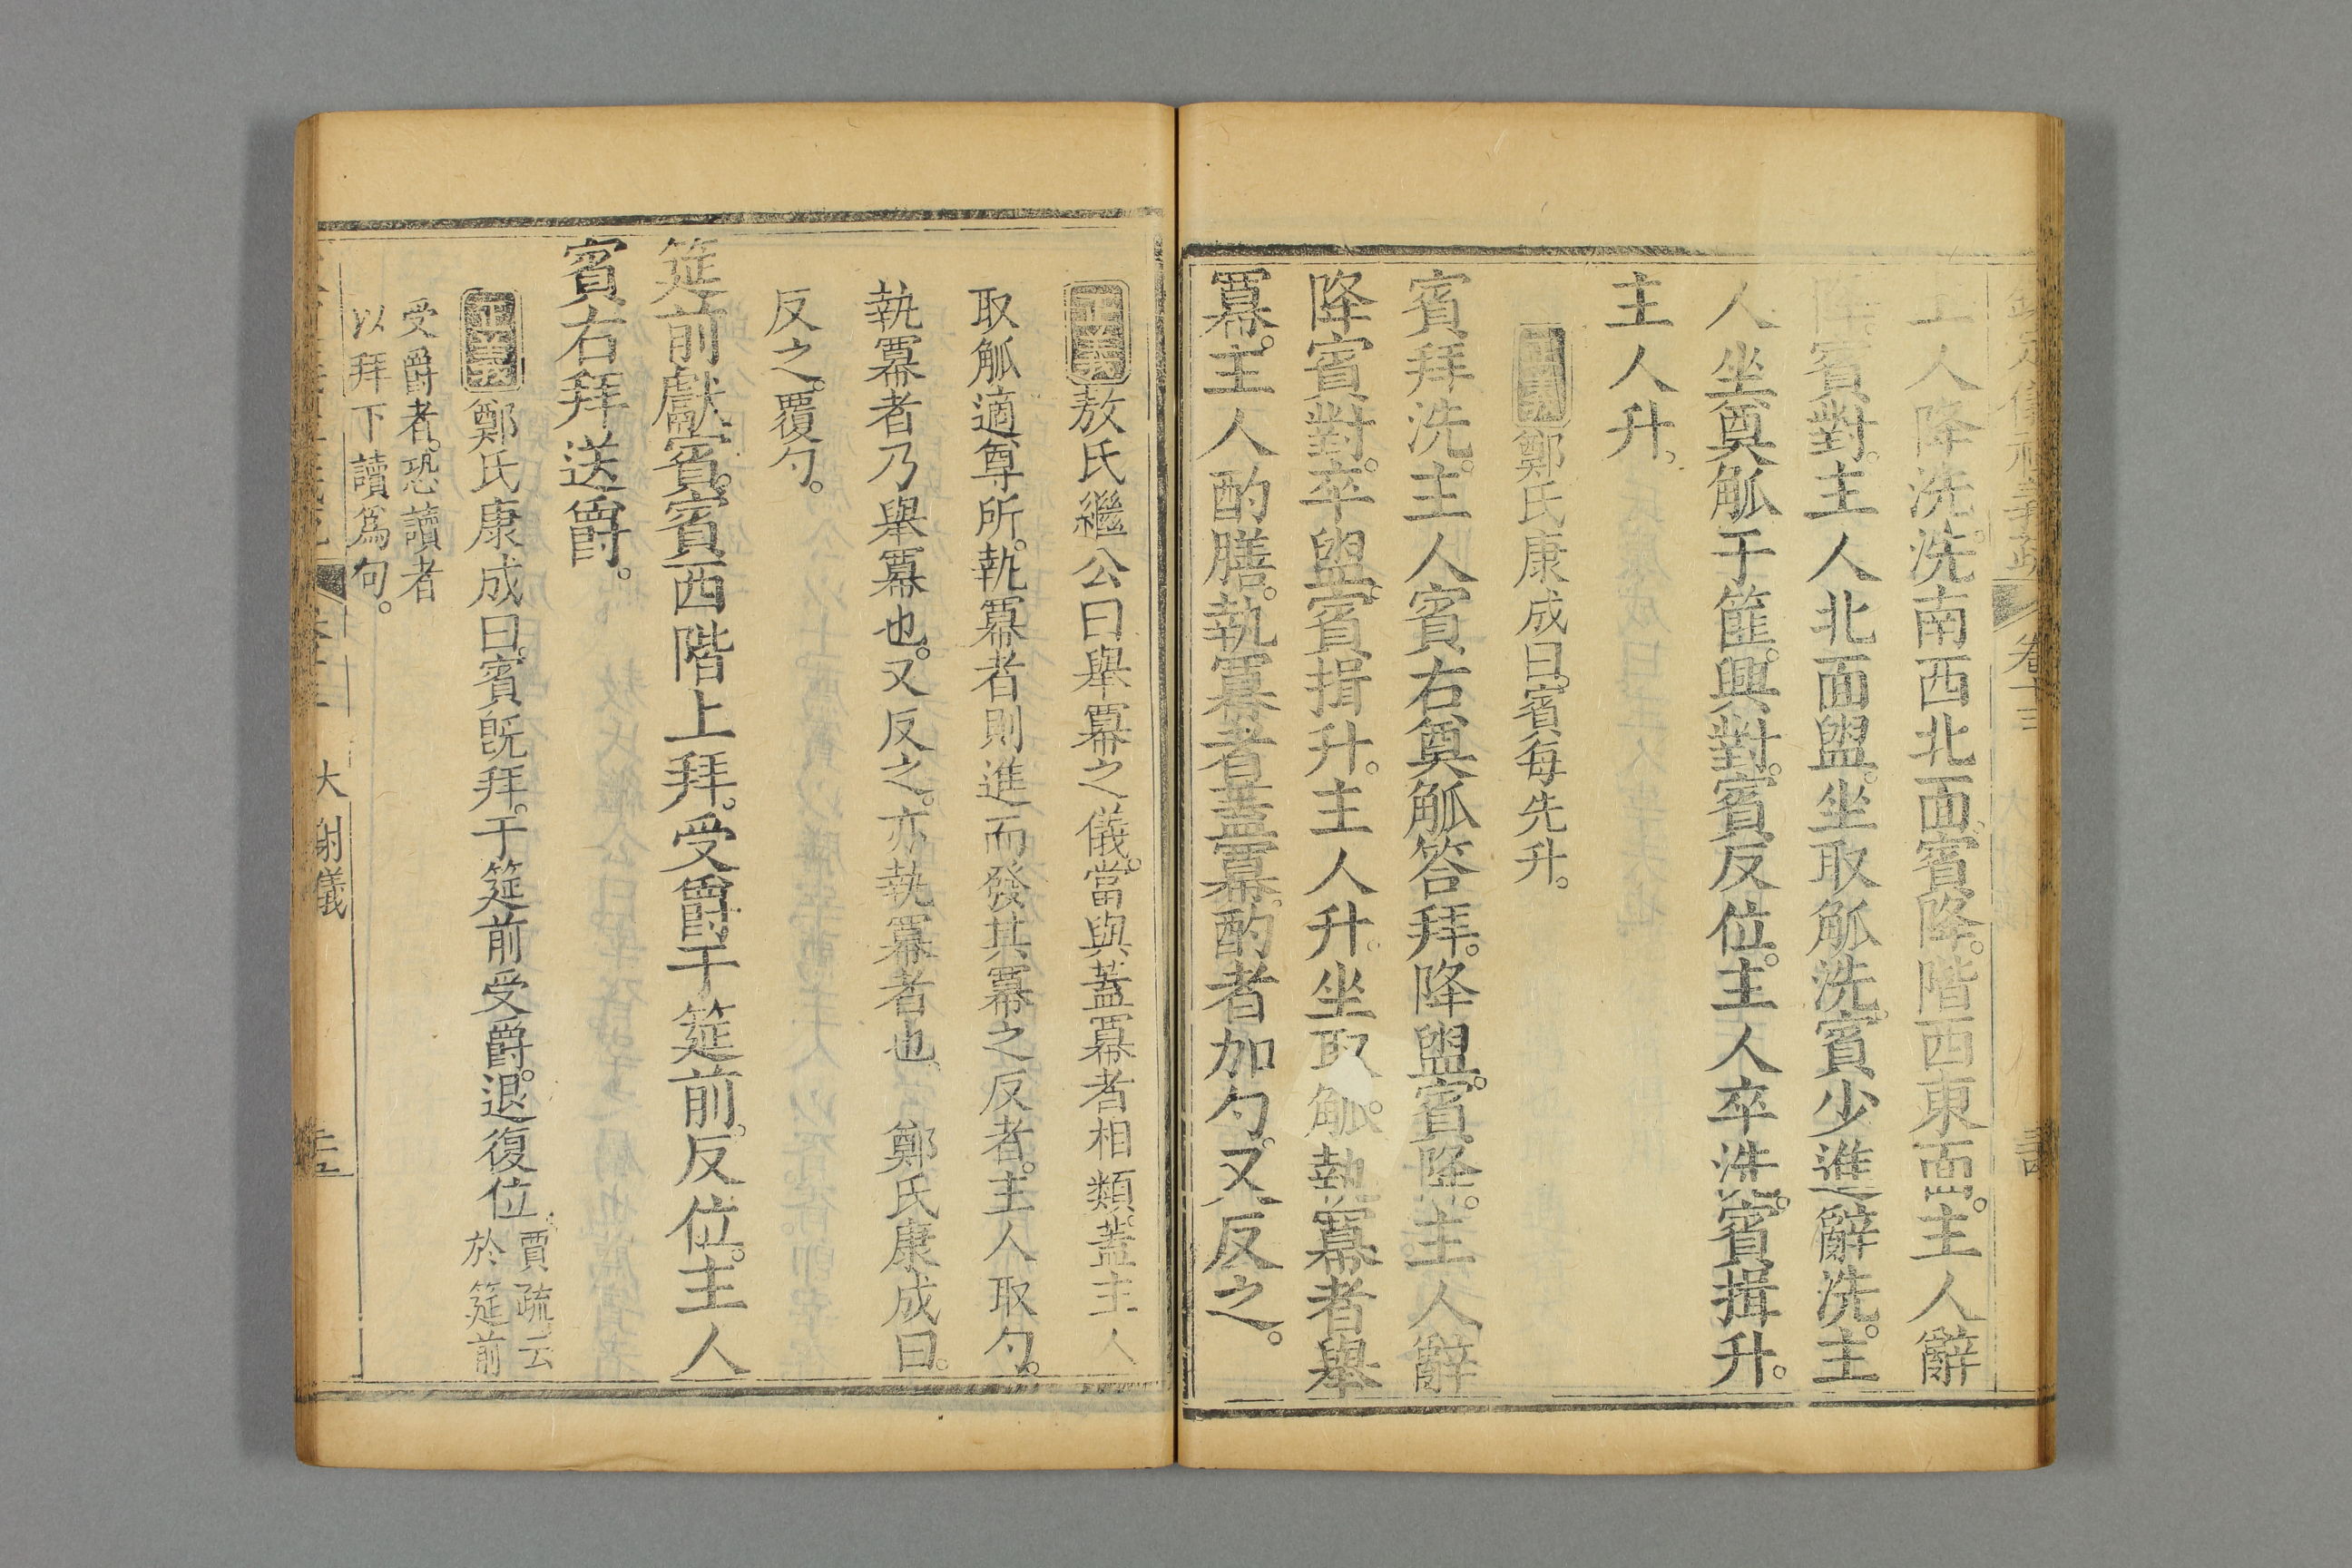 主人降洗。洗南西北面。賓降。階西東面。主人辭
降。賓對。主人北面盥。坐取觚洗。賓少進辭洗。主
人坐奠觚于篚。興對。賓反位。主人卒洗。賓揖升。
主人升。
正義鄭氏康成曰。賓每先升。
賓拜洗。主人賓右奠觚答拜。降盥。賓降。主人辭
降。賓對。卒盥。賓揖升。主人升。坐取觚。執冪者舉
冪。主人酌膳。執冪者蓋冪。酌者加勺。又反之。
正義敖氏繼公曰舉冪之儀。當與蓋冪者相類。蓋主人
取觚適尊所。執冪者則進而發其冪之反者。主人取勺。
執冪者乃舉冪也。又反之。亦執冪者也。鄭氏康成曰。
反之。覆勺。
筵前獻賓。賓西階上拜。受爵于筵前。反位。主人
賓右拜送爵。
正義鄭氏康成曰。賓旣拜。于筵前受爵。退復位。賈疏云
於筵前
受爵者。恐讀者
以拜下讀爲句。
大射儀